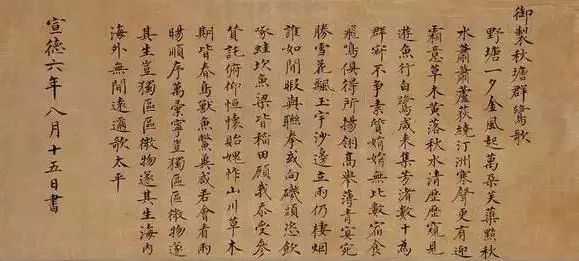 御製秋塘群鷺歌
野塘一夕金風起萬朵芙蕖點秋
水蕭蕭蘆荻繞汀洲寒聲更有迎
霜意草木黃落秋水清歷歷寬見
遊魚行白鷺咸來集芳渚數十為
群寂不爭素質娟娟無比數宿食
飛鳴俱得所揚翎高舉薄青冥宛
勝雪花飄玉宇沙邊立雨仍棲烟
誰如閒暇與聯拳或向磯頭恣飲
啄蛙坎魚梁皆稻田顧我忝受參
贊託俯仰恒懷貽愧怍山川草木
期皆春鳥獸魚鱉奠咸若會看雨
暘順序萬彙寧豈獨區區微物遂
其生豈獨區區微物遂其生海內
海外無間遠邇歌太平
宣德六年八月十五日書